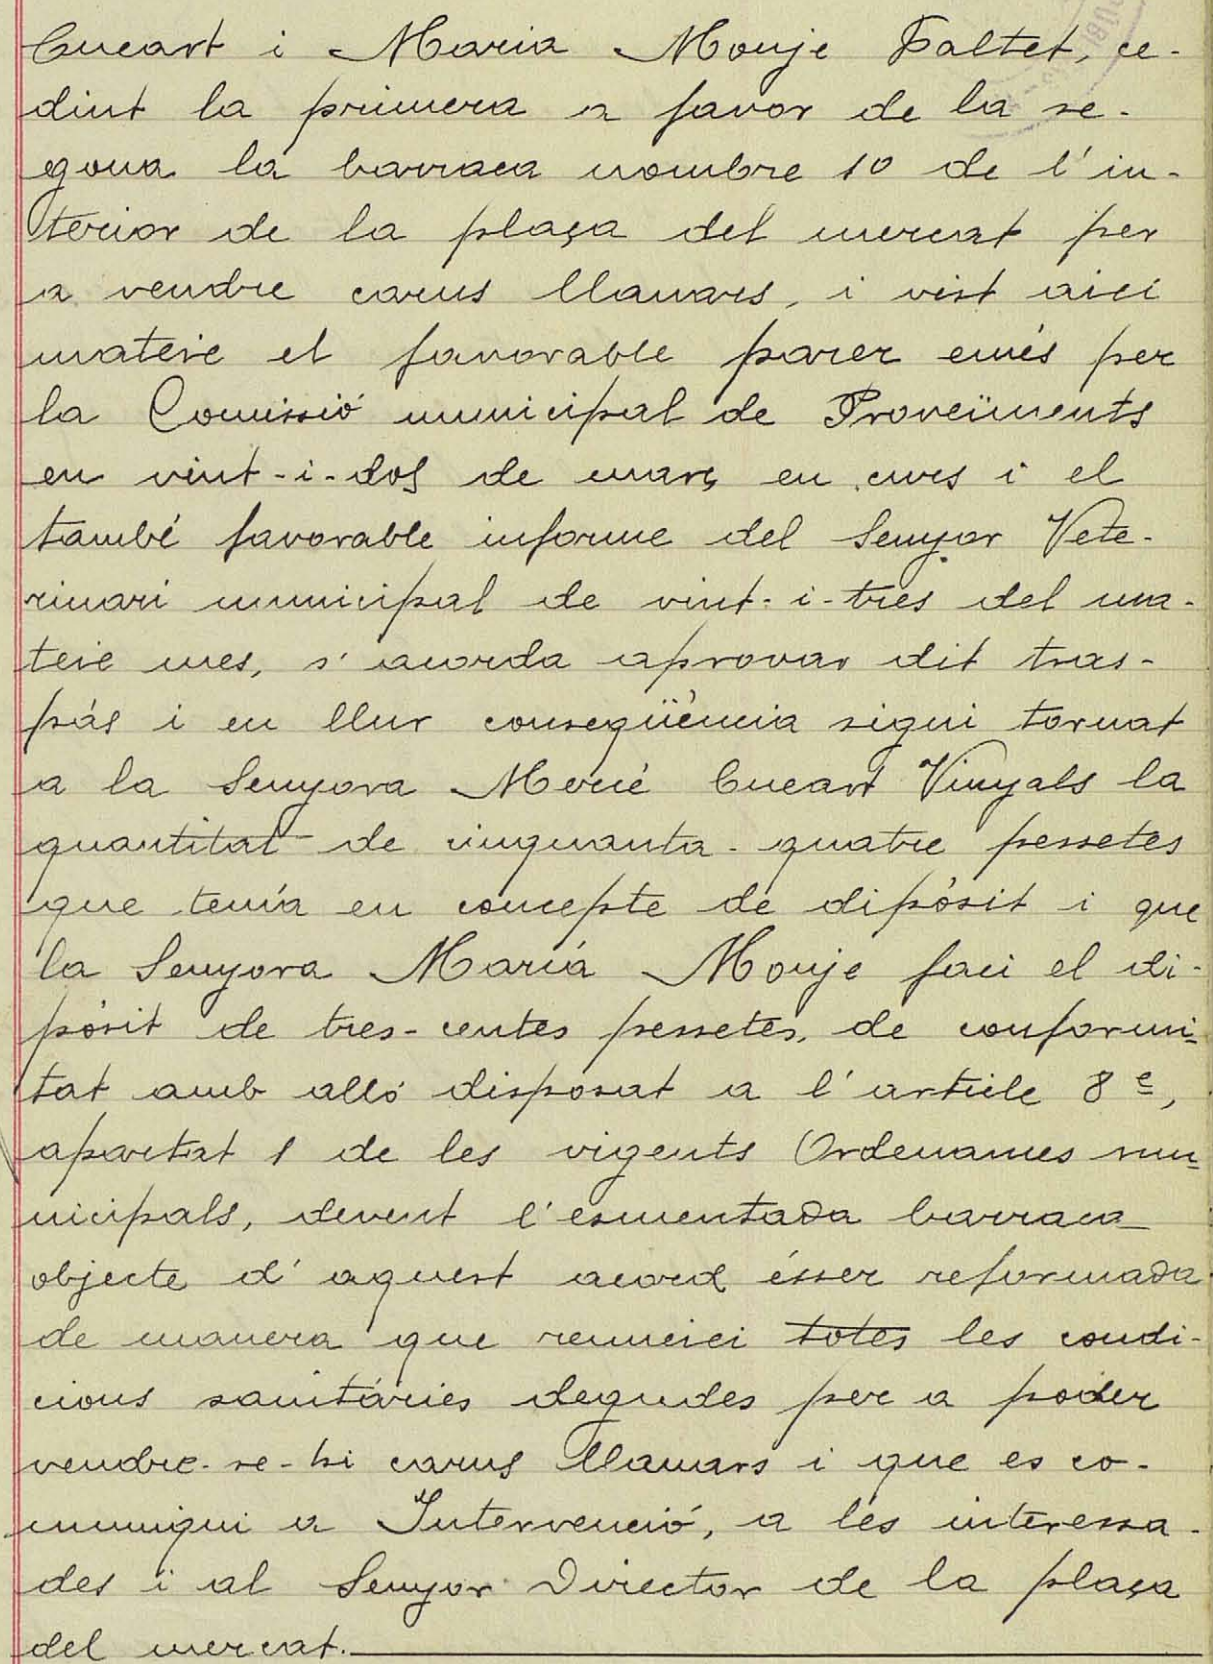 Cucart i Maria Monje Faltet, ce-
dint la primera a favor de la se-
gona la barraca nombre 10 de l'in-
terior de la plaça del mercat per
a vendre carns llanars, i vist aixi
mateix el favorable parer emès per
la Comissió municipal de Proveïments
en vint-i-dos de març en curs i el
també favorable informe del Senyor Vete-
rinari municipal de vint-i-tres del ma-
teix mes, s'acorda aprovar dit tras-
pás i en llur conseqüéncia sigui tornat
a la Senyora Mercé Cucart Vinyals la
quantitat de cinquanta-quatre pessetes
que tenía en concepte de dipósit i que
la Senyora María Monje faci el di-
pósit de tres-centes pessetes, de conformi-
tat amb alló disposat a l'article 8e,
apartat 1 de les vigents Ordenances mu-
nicipals, devent l'esmentada barraca
objecte d'aquest acord ésser reformada
de manera que reuneixi totes les condi-
cions sanitáries degudes per a poder
vendre-se-hi carns llanars i que es co-
muniqui a Intervenció, a les interessa-
des i al Senyor Director de la plaça
del mercat.